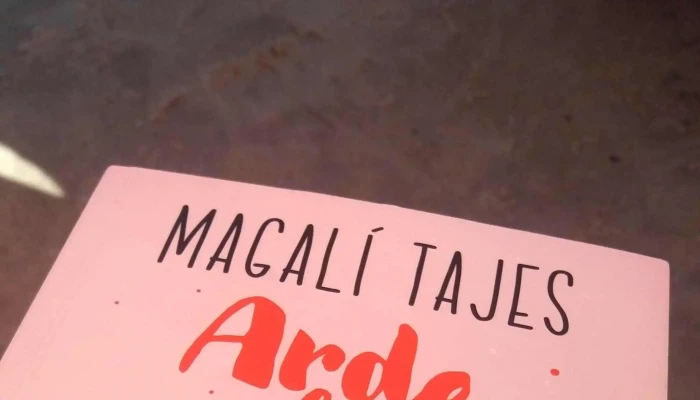 MAGALÍ TAJES
Arde